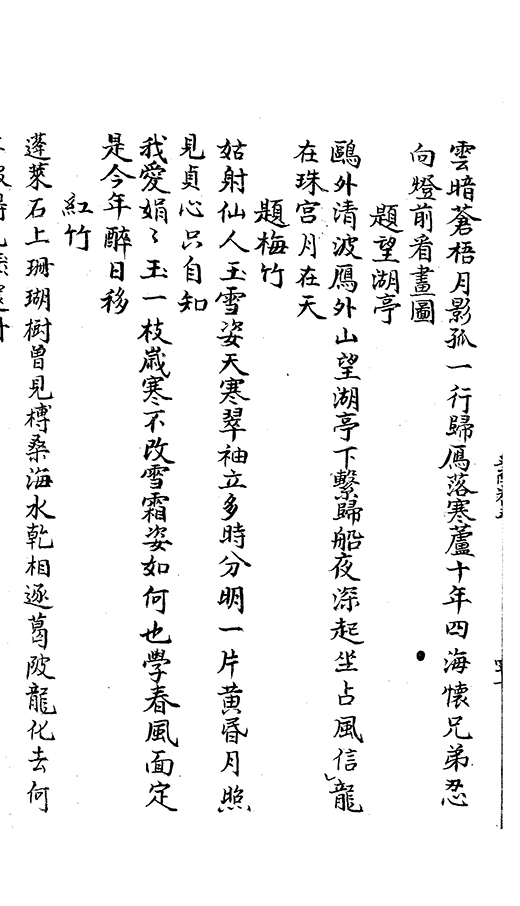 雲暗蒼梧月影孤一行歸鴈落寒蘆十年四海懷兄弟忍
向燈前看畫圖
題望湖亭
鷗外清波鴈外山望湖亭下繫歸船夜深起坐占風信龍
在珠宮月在天
題梅竹
姑射仙人玉雪姿天寒翠袖立多時分明一片黃昏月照
見貞心只自知
我愛娟〻玉一枝歲寒不改雪霜姿如何也學春風面定
是今年醉日移
紅竹
蓬萊石上珊瑚樹曾見榑桑海水乾相逐葛陂龍化去何